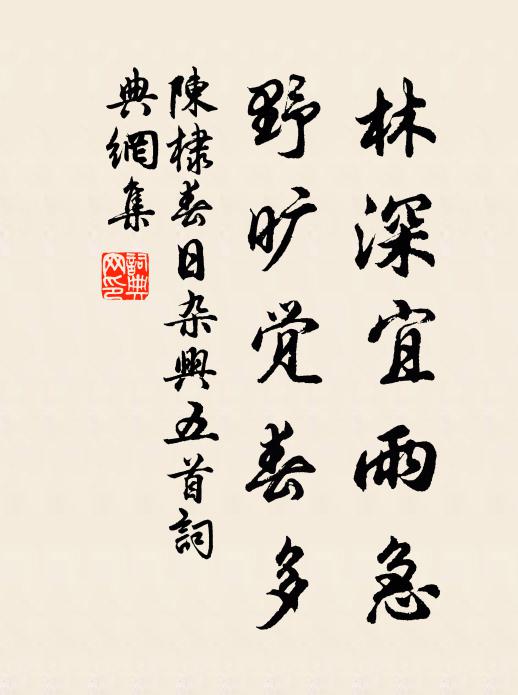 林深宜雨急
野旷觉春多
陳棣春日杂興五首詞
典網集
詞典
网印